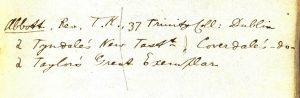 Abbott, Rev. T.K., 37 Trinity Coll: Dublin
2 Tyndale's New Testt. } Coverdale's -do-
2 Taylor's Great Exemplar